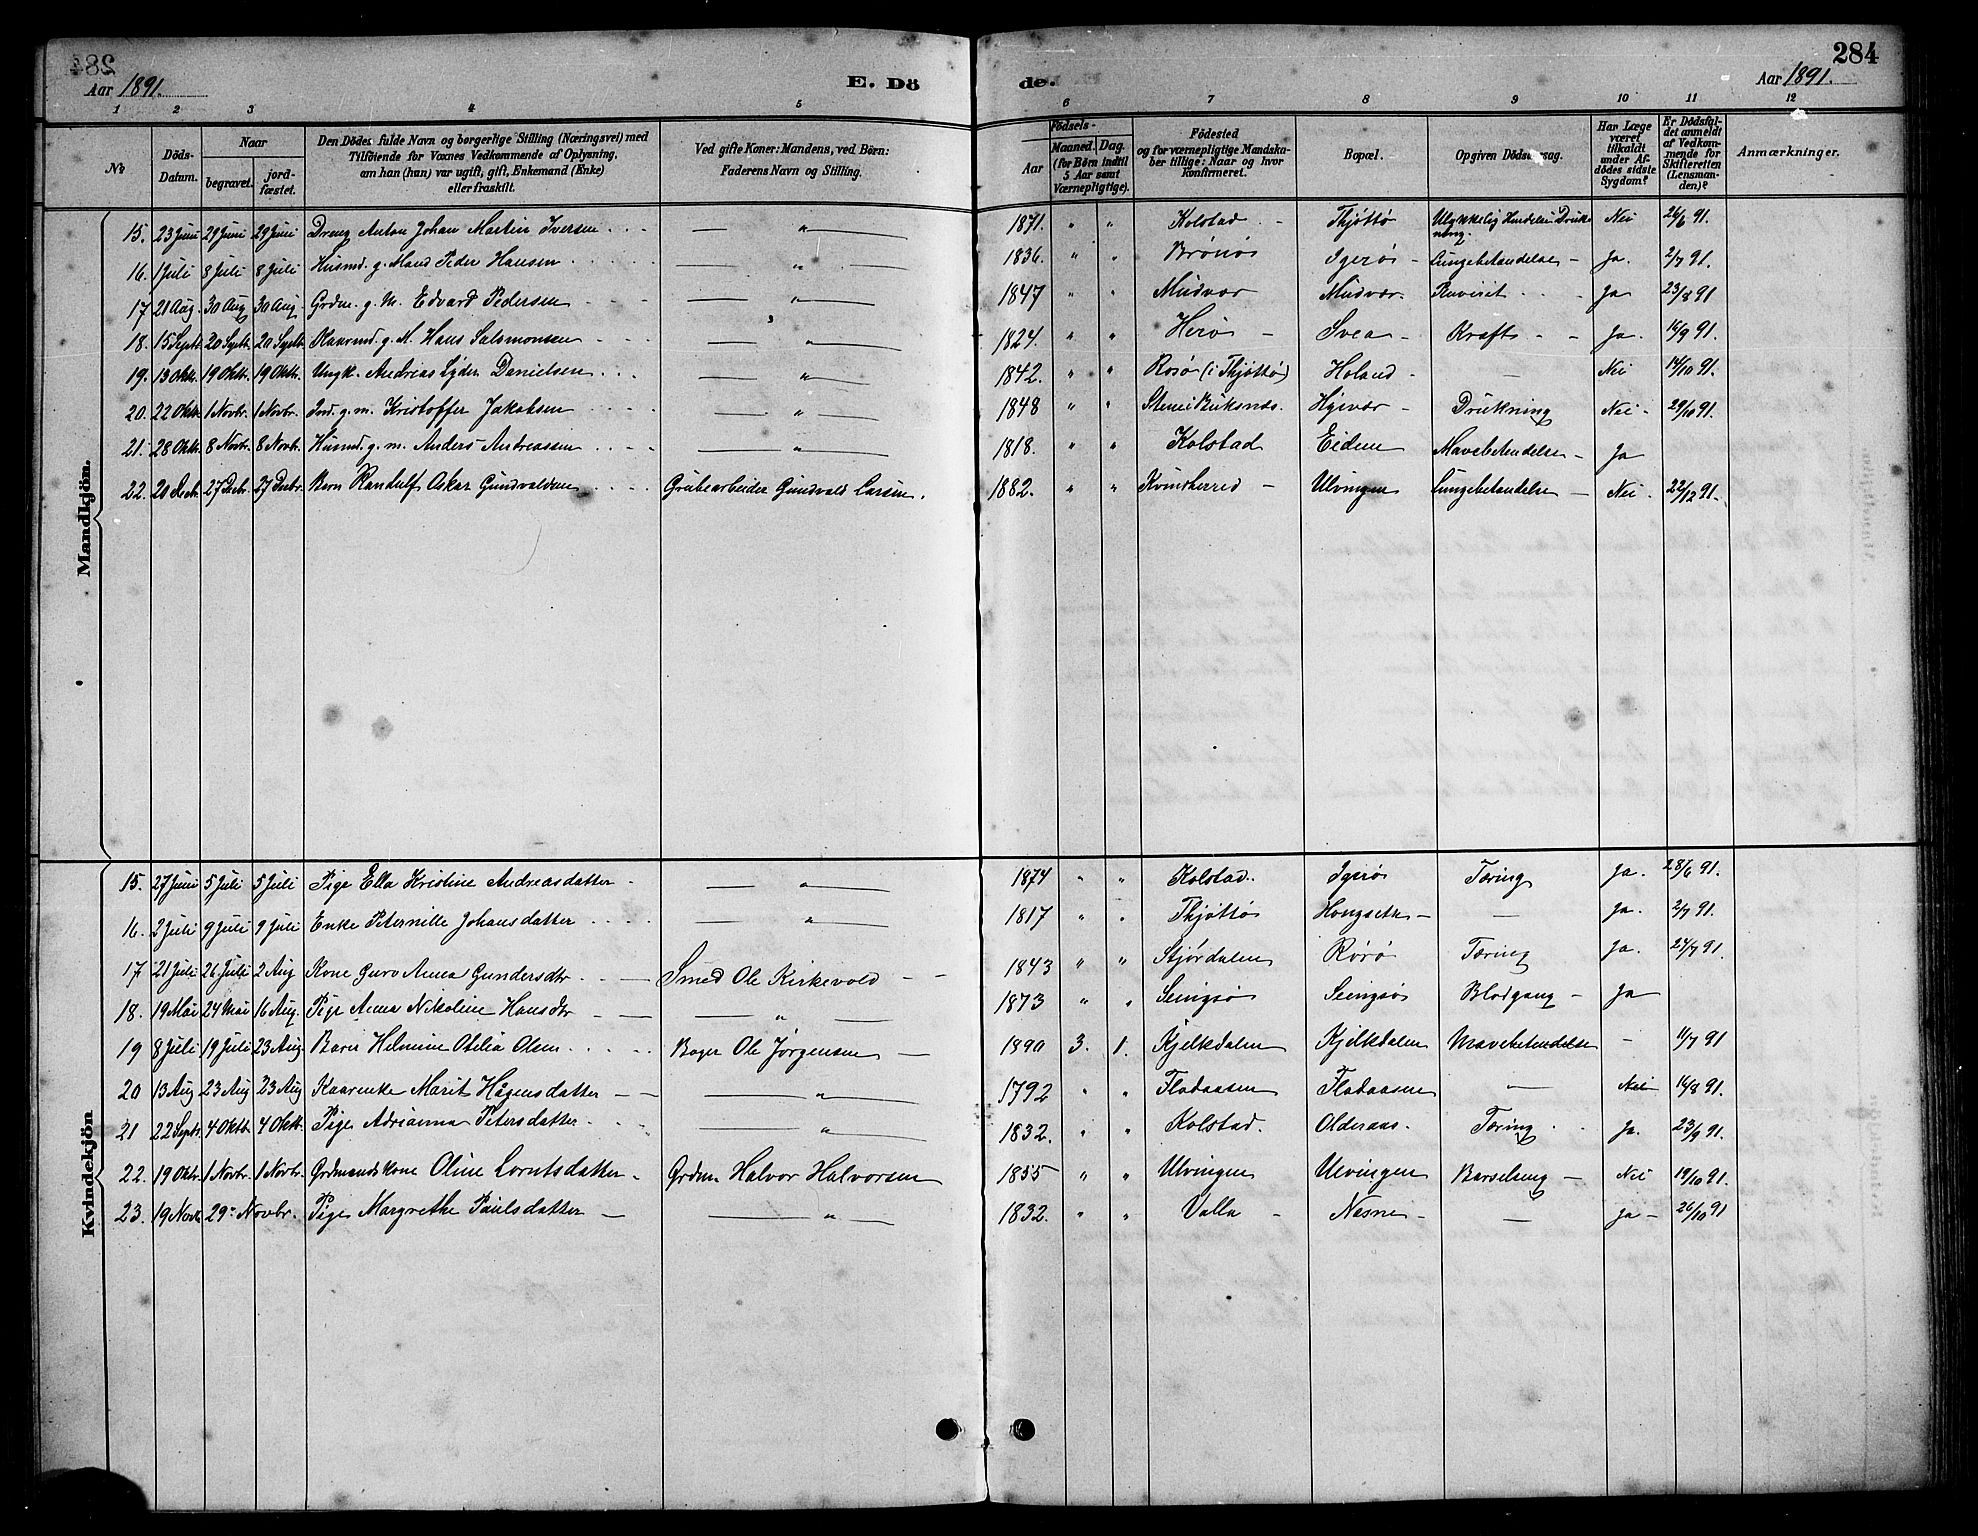 284
Aar 1891. E. Dö
1 2 3 4 5
№ Döds-Datum. Naar begravet. jord-fæstet. Den Dödes fulde Navn og borgerlige Stilling (Næringsvei) med Tilföiende for Voxnes Vedkommende af Oplysning, om han (hun) var ugift, gift, Enkemand (Enke) eller fraskilt. Ved gifte Koner: Mandens, ved Börn: Faderens Navn og Stilling.
Mandkjön.
15. 23 Juni 29 Juni 29 Juni Dreng Anton Johan Martin Iversen — „ —
16. 1 Juli 8 Juli 8 Juli Husmd. g. Mand Peder Hansen — „ —
17 21 Aug. 30 Aug 30 Aug. Grdm. g. M. Edvard Pedersen — „ —
18. 15 Septb. 20 Septb. 20 Septb. Kaarmd. g. M. Hans Salomonsen — „ —
19. 13 Oktb. 19 Oktb. 19 Oktb. Ungk. Andreas Lyder Danielsen — „ —
20. 22 Oktb. 1 Novbr. 1 Novbr. Ind. g. m. Kristoffer Jakobsen — „ —
21. 28 Oktb. 8 Novbr. 8 Novbr. Husmd. g. m. Anders Andreassen — „ —
22. 20 Decb. 27 Decbr. 27 Decbr. Barn Randulf Oskar Gundvaldsen Grubearbeider Gundvald Larsen.
Kvindekjön
15. 27 Juni 5 Juli 5 Juli Pige Ella Kristine Andreasdatter — „ —
16. 2 Juli 9 Juli 9 Juli Enke Peternille Johansdatter — „ —
17 21 Juli 26 Juli 2 Aug Kone Guro Anna Gundersdtr Smed Ole Kirkevold
18. 19 Mai 24 Mai 16 Aug. Pige Anna Nikoline Hansdtr — „ —
19 8 Juli 19 Juli 23 Aug. Barn Helmine Otelia Olsen Bager Ole Jørgensen
20 13 Aug 23 Aug 23 Aug Kaarenke Marit Hågensdatter — „ —
21 22 Septb. 4 Oktb. 4 Oktb. Pige Adrianna Petersdatter — „ —
22. 19 Oktbr. 1 Novbr. 1 Novbr. Grdmandskone Oline Lorntsdatter Grdm. Halvor Halvorsen
23. 19 Novb. 29 Novbr. Pige Margrethe Paulsdatter — „ —
de. Aar 1891. 284
6 7 8 9 10 11 12
Födsels- Aar Maaned. Dag. (for Börn indtil 5 Aar samt Værnepligtige). Födested og for værnepligtige Mandskaber tillige: Naar og hvor konfirmeret. Bopæl. Opgiven Dödsaarsag. Har Læge været tilkaldt under Afdödes sidste Sygdom? Er Dödsfaldet anmeldt af Vedkommende for Skifteretten (Lensmanden)? Anmærkninger.
1871. „ „ Kolstad Thjøttø Ulykkelig Hændelse: Drukning. Nei 26/6 91.
1836. „ „ Brønøs Igerøs Lungebetændelse Ja. 2/7 91.
1847 „ „ Mudvær Mudvær. Ja 23/8 91
1824. „ „ Herø Svea Kræft Ja. 16/9 91.
1842. „ „ Rosø (i Thjøttø) Holand — Nei 14/10 91.
1848 „ „ Drukning Nei. 29/10 91.
1818. „ „ Kolstad Eidem Mavebetændelse Ja
1882. „ „ Kvinsherred Ulvingen Lungebetændelse Nei 22/12 91.
1874 „ „ Kolstad. Igerøs Tæring Ja. 28/6 91.
1817 „ „ Thjøttø Hongseth — Ja. 2/7 91.
1843 „ „ Stjørdalen Rørø Tæring Ja. 27/7 91.
1873 „ „ Blodgang Ja
1890 3. 1. Kjelkdalen Kjelkdalen Mavebetændelse — 11/7 91
1792 „ „ Flodaasen Flodaasen „ Nei 16/8 91.
1832. „ „ Kolstad. Olderaas. Tæring Ja. 23/9 91.
1855 „ „ Ulvingen Ulvingen Barselseng Nei 19/10 91.
1832. „ „ Valla Nesne — Ja 26/10 91